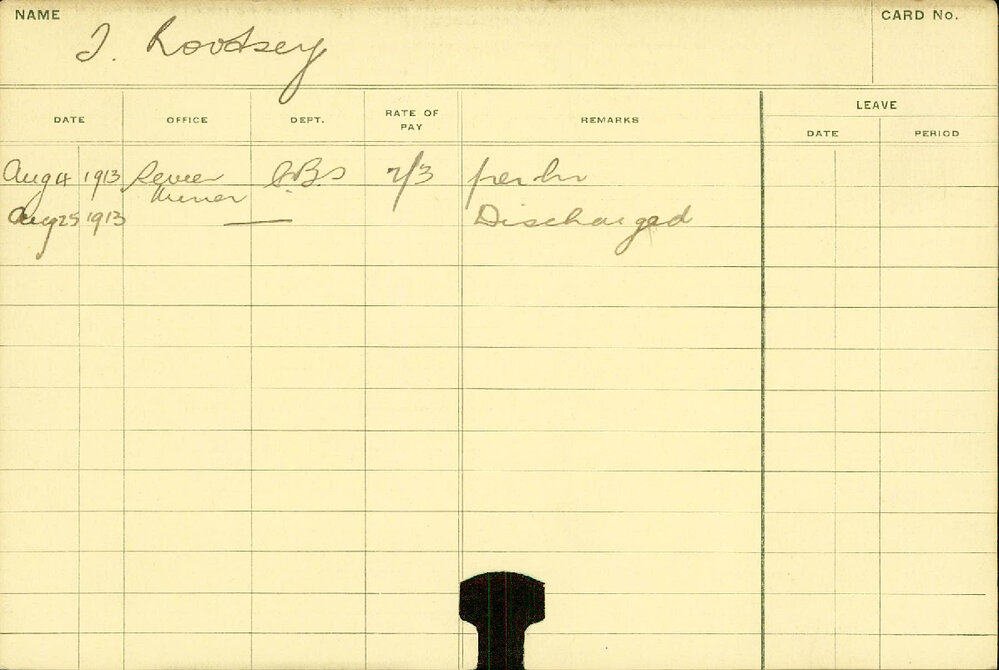 NAME
CARD No.
J. Rootsey
DATE OFFICE DEPT. RATE OF PAY REMARKS LEAVE
DATE PERIOD
Aug 4 1913 Sewer Miner 2/3 per hr
Aug 25 1913 — Discharged